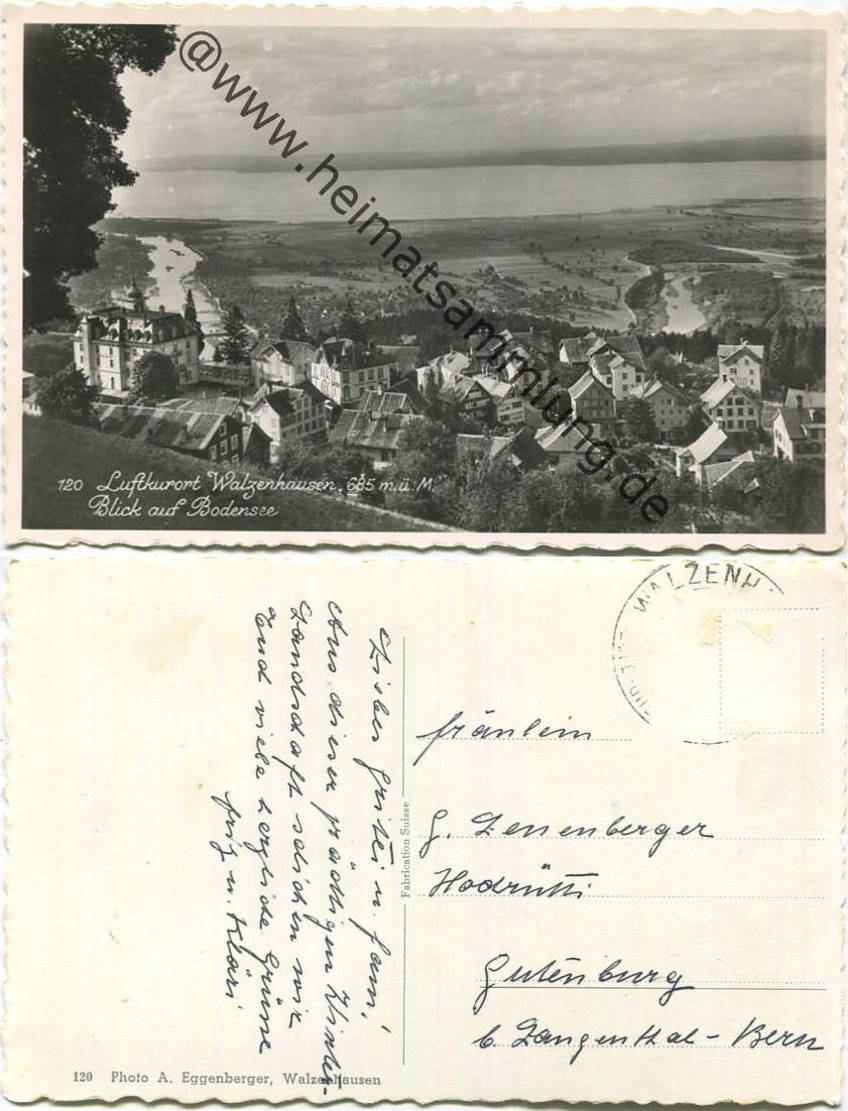 @www.heimatsammlung.de
120 Luftkurort Walzenhausen, 685 m.ü.M.
Blick auf Bodensee
WALZENH
Liebes Gritli u. Fam!
Aus dieser prächtigen Winter-
Landschaft schicken wir
Eüch viele herzliche Grüsse
Fritz u. Kläri
Fabrication Suisse
Fräulein
G. Zenenberger
Hodrütti
Gutenburg
b. Langenthal - Bern
120 Photo A. Eggenberger, Walzenhausen